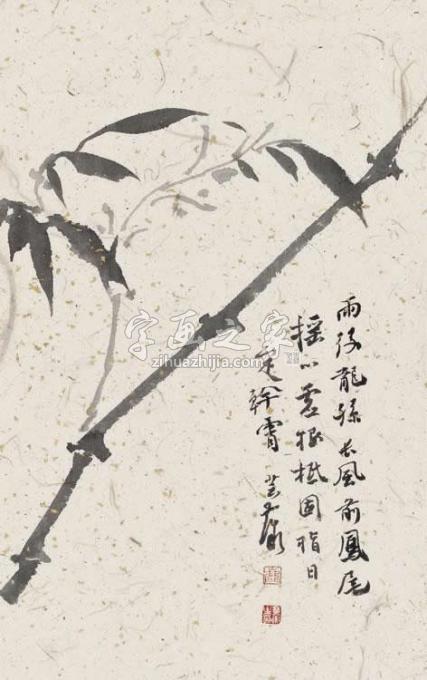 雨後龍孫長風前鳳尾
搖心虛根柢固指日
定幹霄
字画之家
zihuazhijia.com